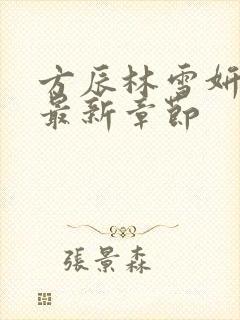 方辰林雪妍
最新章節
張景森